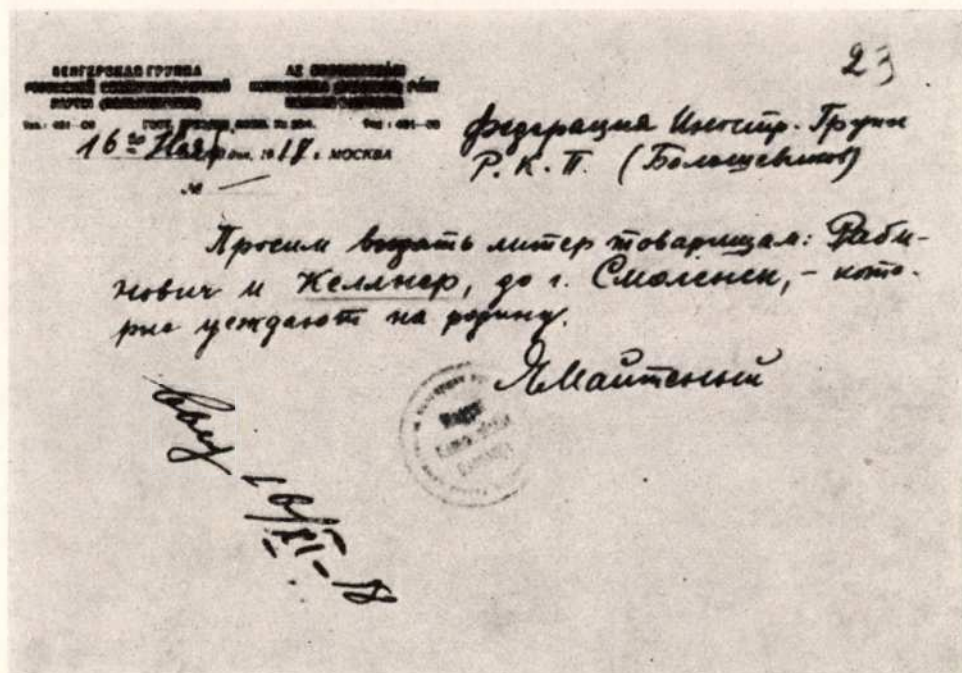 23
ВЕНГЕРСКАЯ ГРУППА
РОССИЙСКОЙ КОММУНИСТИЧЕСКОЙ
ПАРТИИ (БОЛЬШЕВИКОВ)
AZ
PÁRT
16го Нояб 1918 г. МОСКВА
№ —
Федерация Иностр. Групп
Р. К. П. (Большевиков)
Просим выдать литер товарищам: Раби-
нович и Келлнер, до г. Смоленск, – кото-
рые уезждают на родину.
ЯМайтеный
16/XI–18